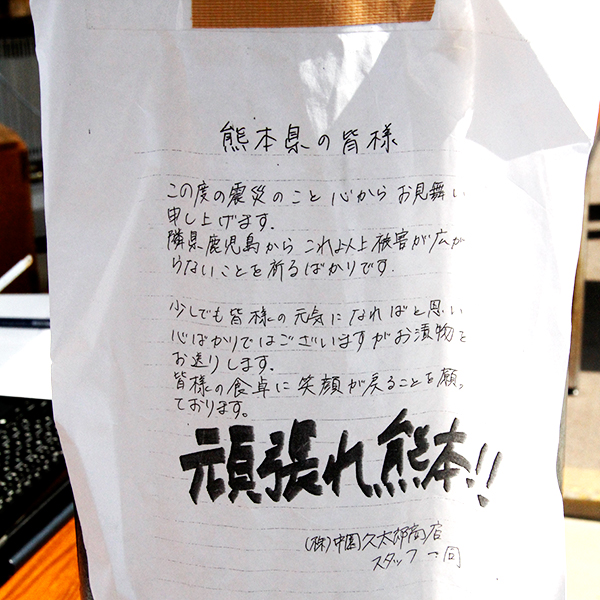 熊本県の皆様
この度の震災のこと心からお見舞い
申し上げます.
隣県鹿児島からこれ以上被害が広が
らないことを祈るばかりです.
少しでも皆様の元気になればと思い
心ばかりではございますがお漬物を
お送りします.
皆様の食卓に笑顔が戻ることを願っ
ております。
頑張れ熊本!!
(株)中園久太郎商店
スタッフ一同